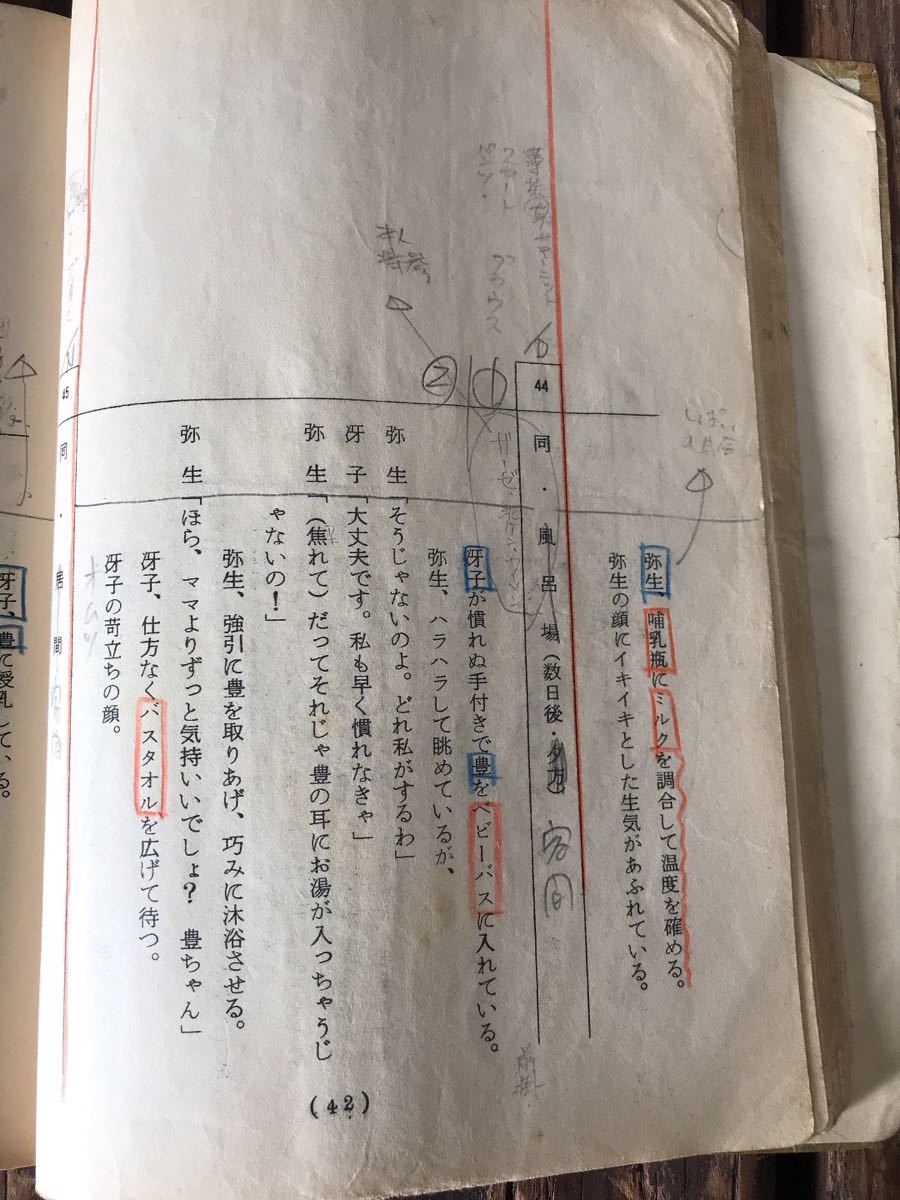 弥生、哺乳瓶にミルクを調合して温度を確める。
弥生の顔にイキイキとした生気があふれている。
44 同・風呂場（数日後・夕方）
冴子が慣れぬ手付きで豊をベビーバスに入れている。
弥生、ハラハラして眺めているが、
弥生「そうじゃないのよ。どれ私がするわ」
冴子「大丈夫です。私も早く慣れなきゃ」
弥生「（焦れて）だってそれじゃ豊の耳にお湯が入っちゃうじ
ゃないの！」
弥生、強引に豊を取りあげ、巧みに沐浴させる。
弥生「ほら、ママよりずっと気持いいでしょ？　豊ちゃん」
冴子、仕方なくバスタオルを広げて待つ。
冴子の苛立ちの顔。
45 同・居間
(42)
スカート
ブラウス
②
①
オムツ
前掛
冴子、豊に授乳している。